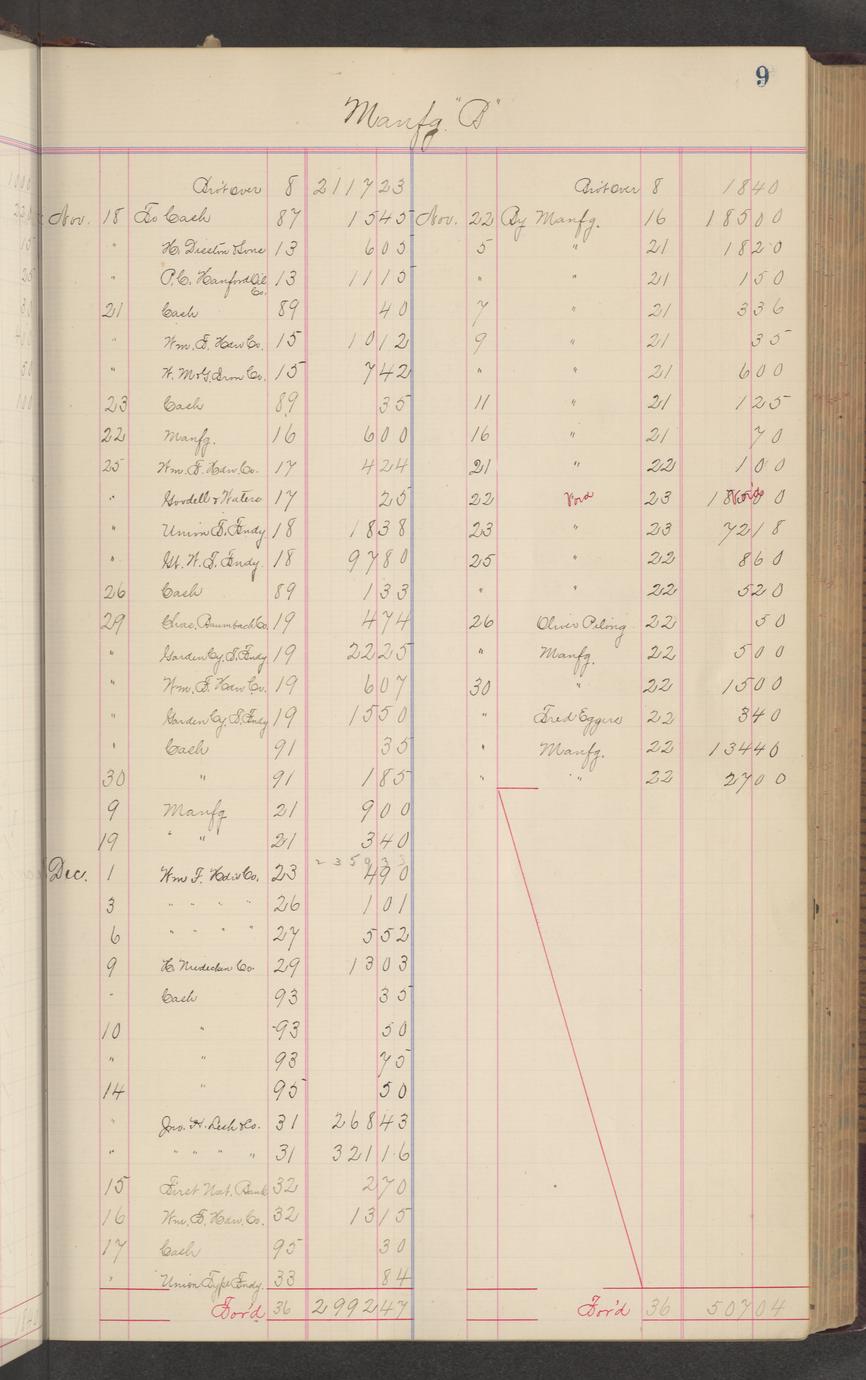 9
Manfg. "B"
Bro't over 8 2117 23
Nov. 18 To Cash 87 15 45
" H. Disston & Sons 13 6 05
" P.C. Hanford Oil Co. 13 11 15
21 Cash 89 40
" Wm. F. Hdw Co. 15 10 12
" 15 7 42
23 Cash 89 35
22 Manfg. 16 6 00
25 Wm. F. Hdw. Co. 17 4 24
" Goodell & Waters 17 25
" Union T. Fndy 18 18 38
" Gt. W. T. Fndy. 18 97 80
26 Cash 89 1 33
29 Chas. Baumbach Co. 19 4 74
" Garden Cy. T. Fndy 19 22 25
" Wm. F. Hdw Co. 19 6 07
" Garden Cy. T. Fndy 19 15 50
" Cash 91 35
30 " 91 1 85
9 Manfg 21 9 00
19 " " 21 3 40
2359 33
Dec. 1 Wm F. Hdw Co. 23 4 90
3 " " " " 26 1 01
6 " " " " 27 5 52
9 29 13 03
" Cash 93 35
10 " 93 50
" " 93 75
14 " 95 50
" Jno. H. Lesh & Co. 31 268 43
" " " " " 31 321 16
15 First Nat. Bank 32 2 70
16 Wm. F. Hdw. Co. 32 13 15
17 Cash 95 30
" Union Type Fndy. 33 84
For'd 36 2992 47
Bro't over 8 18 40
Nov. 22 By Manfg. 16 185 00
5 " 21 18 20
" " 21 1 50
7 " 21 3 36
9 " 21 35
" " 21 6 00
11 " 21 1 25
16 " 21 70
21 " 22 1 00
22 Void 23 185 00 Void
23 " 23 72 18
25 " 22 8 60
" " 22 5 20
26 Oliver Pelong 22 50
" Manfg. 22 5 00
30 " 22 15 00
" Fred Eggers 22 3 40
" Manfg. 22 134 40
" " 22 27 00
For'd 36 507 04